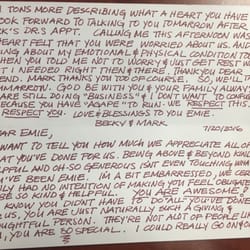 TONS MORE DESCRIBING WHAT A HEART YOU HAVE
OOK FORWARD TO TALKING TO YOU TOMARROW AFTER
K'S DR.'S APPT. CALLING ME THIS AFTERNOON WAS
HEART FELT THAT YOU WERE WORRIED ABOUT US. AND
NG ABOUT MY EMOTIONAL & PHYSICAL CONDITION TO
HEN YOU TOLD ME NOT TO WORRY & JUST GET REST IN
T I NEEDED RIGHT THEN & THERE. THANK YOU DEAR
END. MARK THANKS YOU TOO OF COURSE. SO, WE'LL
MARROW. GOD BE WITH YOU & YOUR FAMILY ALWAYS
ARE STILL DOING "BUSINESS" & I DON'T WANT TO
ECAUSE YOU HAVE "APE" TO RUN. WE RESPECT THIS
RESPECT YOU. LOVE & BLESSINGS TO YOU EMIE.
BECKY & MARK
7/20/2016
EAR EMIE,
WANT TO TELL YOU HOW MUCH WE APPRECIATE ALL OF
AT YOU'VE DONE FOR US. BEING ABOVE & BEYOND KIND
PFUL AND OH-SO GENEROUS ISN'T EVEN TOUCHING HOW
VE BEEN EMIE. I'M A BIT EMBARRESSED, WE
LY HAD NO INTENTION OF MAKING YOU FEEL OBLIG
E SO KIND & HELPFUL. YOU ARE AWESOME
KNOW YOU DIDN'T HAVE TO DO ALL YOU'VE DONE
US, YOU ARE JUST NATURALLY SUCH A GIVING &
OUGHTFUL PERSON. THEY'RE NOT ALOT OF PEOPLE LI
YOU ARE SO SPECIAL. I COULD REALLY GO ON &